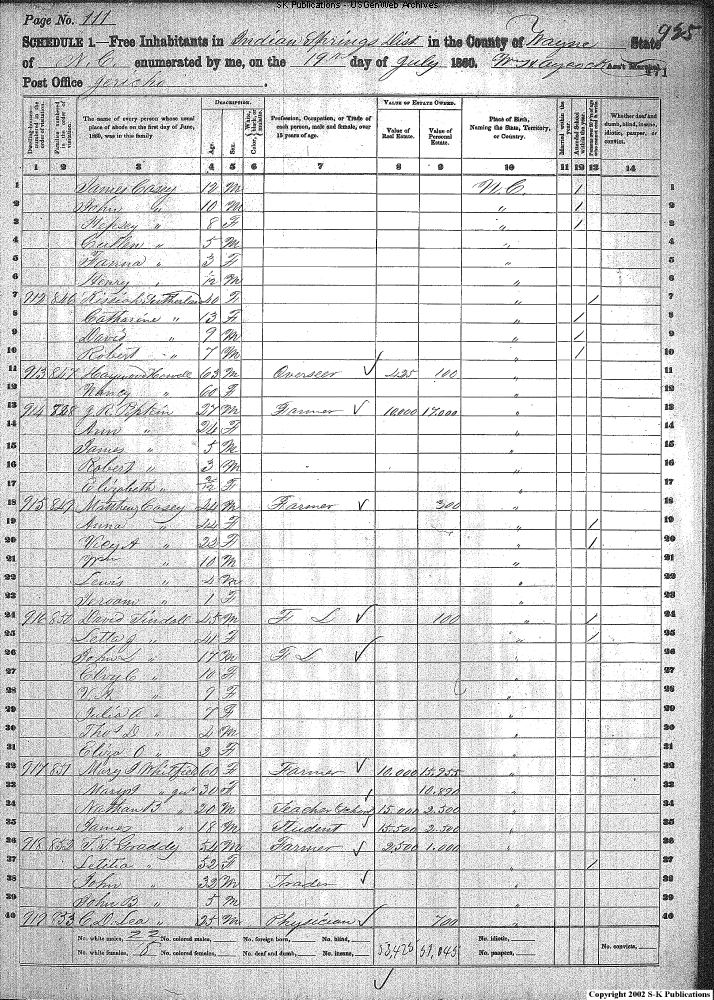 SK Publications - USGenWeb Archives
Page No. 111
925
SCHEDULE 1.—Free Inhabitants in Indian Springs Dist in the County of Wayne State
of N. C. enumerated by me, on the 19th day of July 1860. Wm Haycock Ass't Marshal.
471
Post Office Jericho.
DESCRIPTION.
VALUE OF ESTATE OWNED.
Dwelling-houses numbered in the order of visitation.
The name of every person whose usual place of abode on the first day of June, 1860, was in this family.
Age.
Sex.
Profession, Occupation, or Trade of each person, male and female, over 15 years of age.
Value of Real Estate.
Value of Personal Estate.
Place of Birth, Naming the State, Territory, or Country.
Married within the year.
Whether deaf and dumb, blind, insane, idiotic, pauper, or convict.
1 2 3 4 5 6 7 8 9 10 11 12 13 14
1 James Casey 12 M N. C. / 1
2 John " 10 M " / 2
3 Hepsey " 8 F " / 3
4 " 5 M " 4
5 " 3 F " 5
6 Henry " /12 M " 6
7 912 846 Kissiah Sutherland 40 F " / 7
8 Catharine " 13 F " / 8
9 David " 9 M " / 9
10 Robert " 7 M " / 10
11 913 847 Haywood Howell 63 M Overseer 425 100 " 11
12 Nancy " 60 F " 12
13 914 848 J. R. Pipkin 27 M Farmer 10,000 17,000 " 13
14 Ann " 24 F " 14
15 James " 5 M " 15
16 Robert " 3 M " 16
17 Elizabeth " /12 F " 17
18 915 849 Matthew Casey 44 M Farmer 300 " 18
19 Anna " 44 F " / 19
20 Vicy A " 22 F " / 20
21 Wm " 10 M " 21
22 Lewis " 4 M " 22
23 " 1 F " 23
24 916 850 David Tindall 45 M F L 100 " / 24
25 " 41 F " / 25
26 John L " 17 M F L " 26
27 " 10 F " 27
28 " 9 F " 28
29 Julia A " 7 F " 29
30 Thos D " 4 M " 30
31 Eliza O " 2 F " 31
32 917 851 Mary J Whitfield 60 F Farmer 10,000 15,955 " 32
33 Mary J " 30 F 10,890 " 33
34 Nathan B " 20 M Teacher 15,000 2,500 " 34
35 James " 18 M Student 15,500 2,500 " 35
36 918 852 T. T. Graddy 54 M Farmer 2,500 1,000 " 36
37 Letitia " 52 F " / 37
38 John " 32 M Trader " 38
39 John B " 5 M " 39
40 919 853 C. D. Lea " 25 M Physician 700 " 40
No. white males, 22 No. colored males, No. foreign born, No. blind, No. idiotic, No. convicts,
No. white females, No. colored females, No. deaf and dumb, No. insane, 53,425 No. paupers,
Copyright 2002 S-K Publications